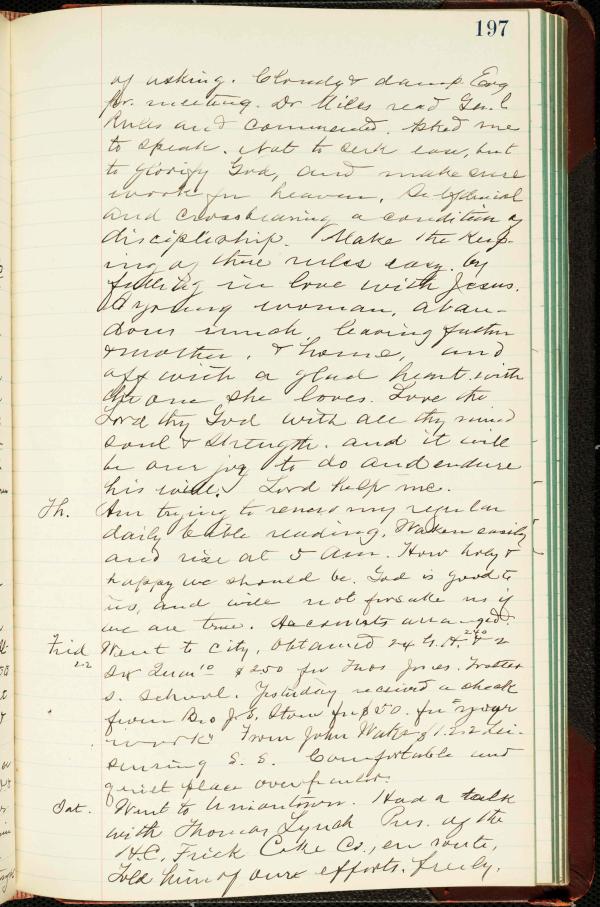 197
of asking. Cloudy & damp. Evg
pr. meeting. Dr Miles read Gen.l
Rules and commented. Asked me
to speak. Not to seek ease, but
to glorify God, and make sure
work for heaven. Self denial
and crossbearing a condition of
discipleship. Make the keep-
ing of these rules easy by
falling in love with Jesus.
A young woman, aban-
dons much, leaving father
& mother, & home, and
off with a glad heart with
the one she loves. Love the
Lord thy God with all thy mind
soul & strength. and it will
be our joy to do and endure
his will. Lord help me.
Th. Am trying to renew my regular
daily bible reading. Waken easily
and rise at 5 Am. How holy &
happy we should be. God is good to
us, and will not forsake us if
we are true. Accounts arranged.
Frid Went to city, obtained 24 G. H. 2 40 & 2
22 $2.50 for Thos Jones. Trotter
S. School. Yesterday received a check
from Bro J. S. Stone for $50. for my
work. From John Wates $1.22
S. S. Comfortable and
quiet place
Sat. Went to Uniontown. Had a talk
with Thomas Lynch Pres. of the
H.C. Frick Coke Co., en route,
Told him of our efforts. freely.